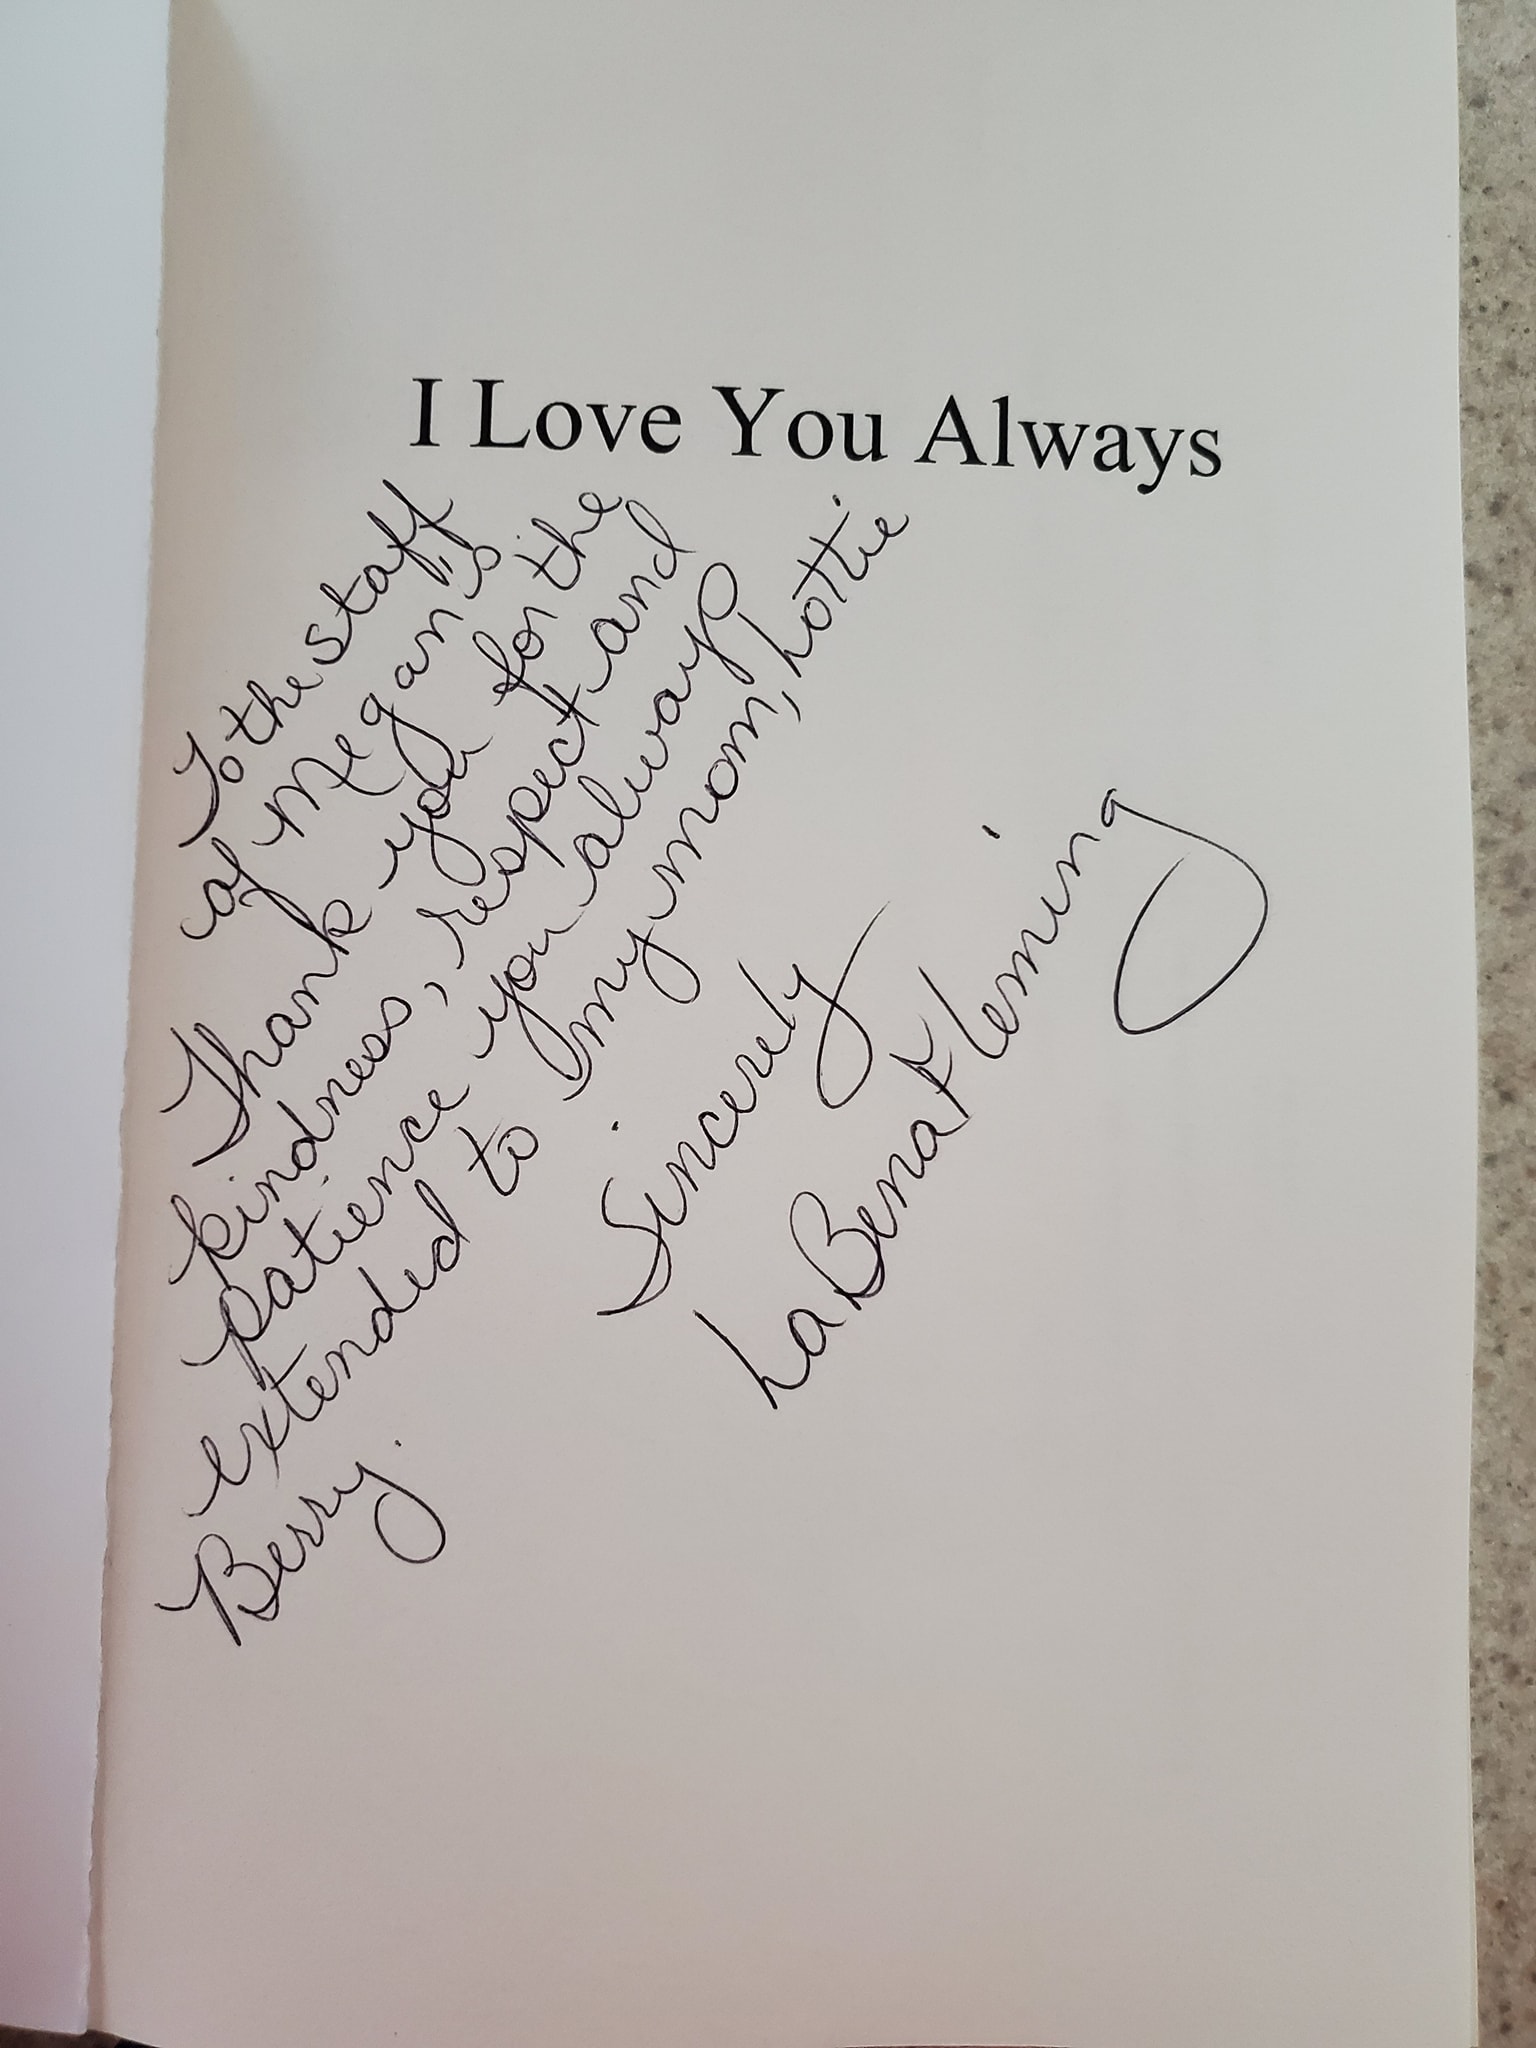 I Love You Always
To the staff
of Megan's
Thank you for the
kindness, respect and
patience you always
extended to my mom, Lottie
Berry.
Sincerely
LaBena Fleming